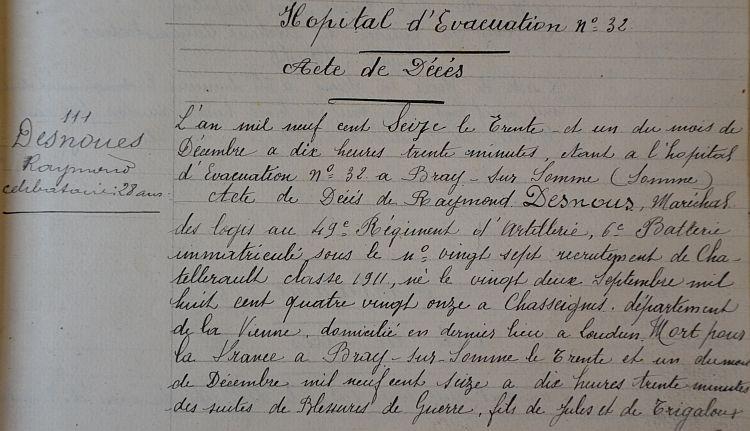 Hopital d'Evacuation Nº 32
Acte de Décés
111
Desnoues
Raymond
celibataire 28 ans
L'an mil neuf cent Seize le Trente et un du mois de
Décembre a dix heures trente minutes, etant a l'hopital
d'Evacuation Nº 32 a Bray-sur-Somme (Somme)
Acte de Décés de Raymond Desnous, Maréchal
des logis au 49e Régiment d'Artillerie, 6e Batterie
immatriculé sous le nº vingt sept recrutement de Cha-
tellerault classe 1911, né le vingt deux Septembre mil
huit cent quatre vingt onze a Chasseignes. département
de la Vienne, domicilié en dernier lieu a loudun. Mort pour
la France a Bray-sur-Somme le Trente et un du mois
de Décembre mil neuf cent Seize a dix heures trente minutes
des suites de Blessures de Guerre, fils de Jules et de